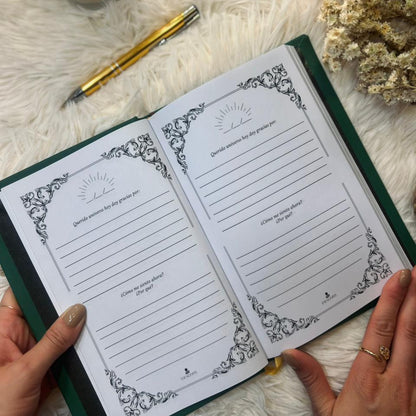 Querido universo hoy doy gracias por:
¿Cómo me siento ahora?
¿Por qué?
Querido universo hoy doy gracias por:
¿Cómo me siento ahora?
¿Por qué?